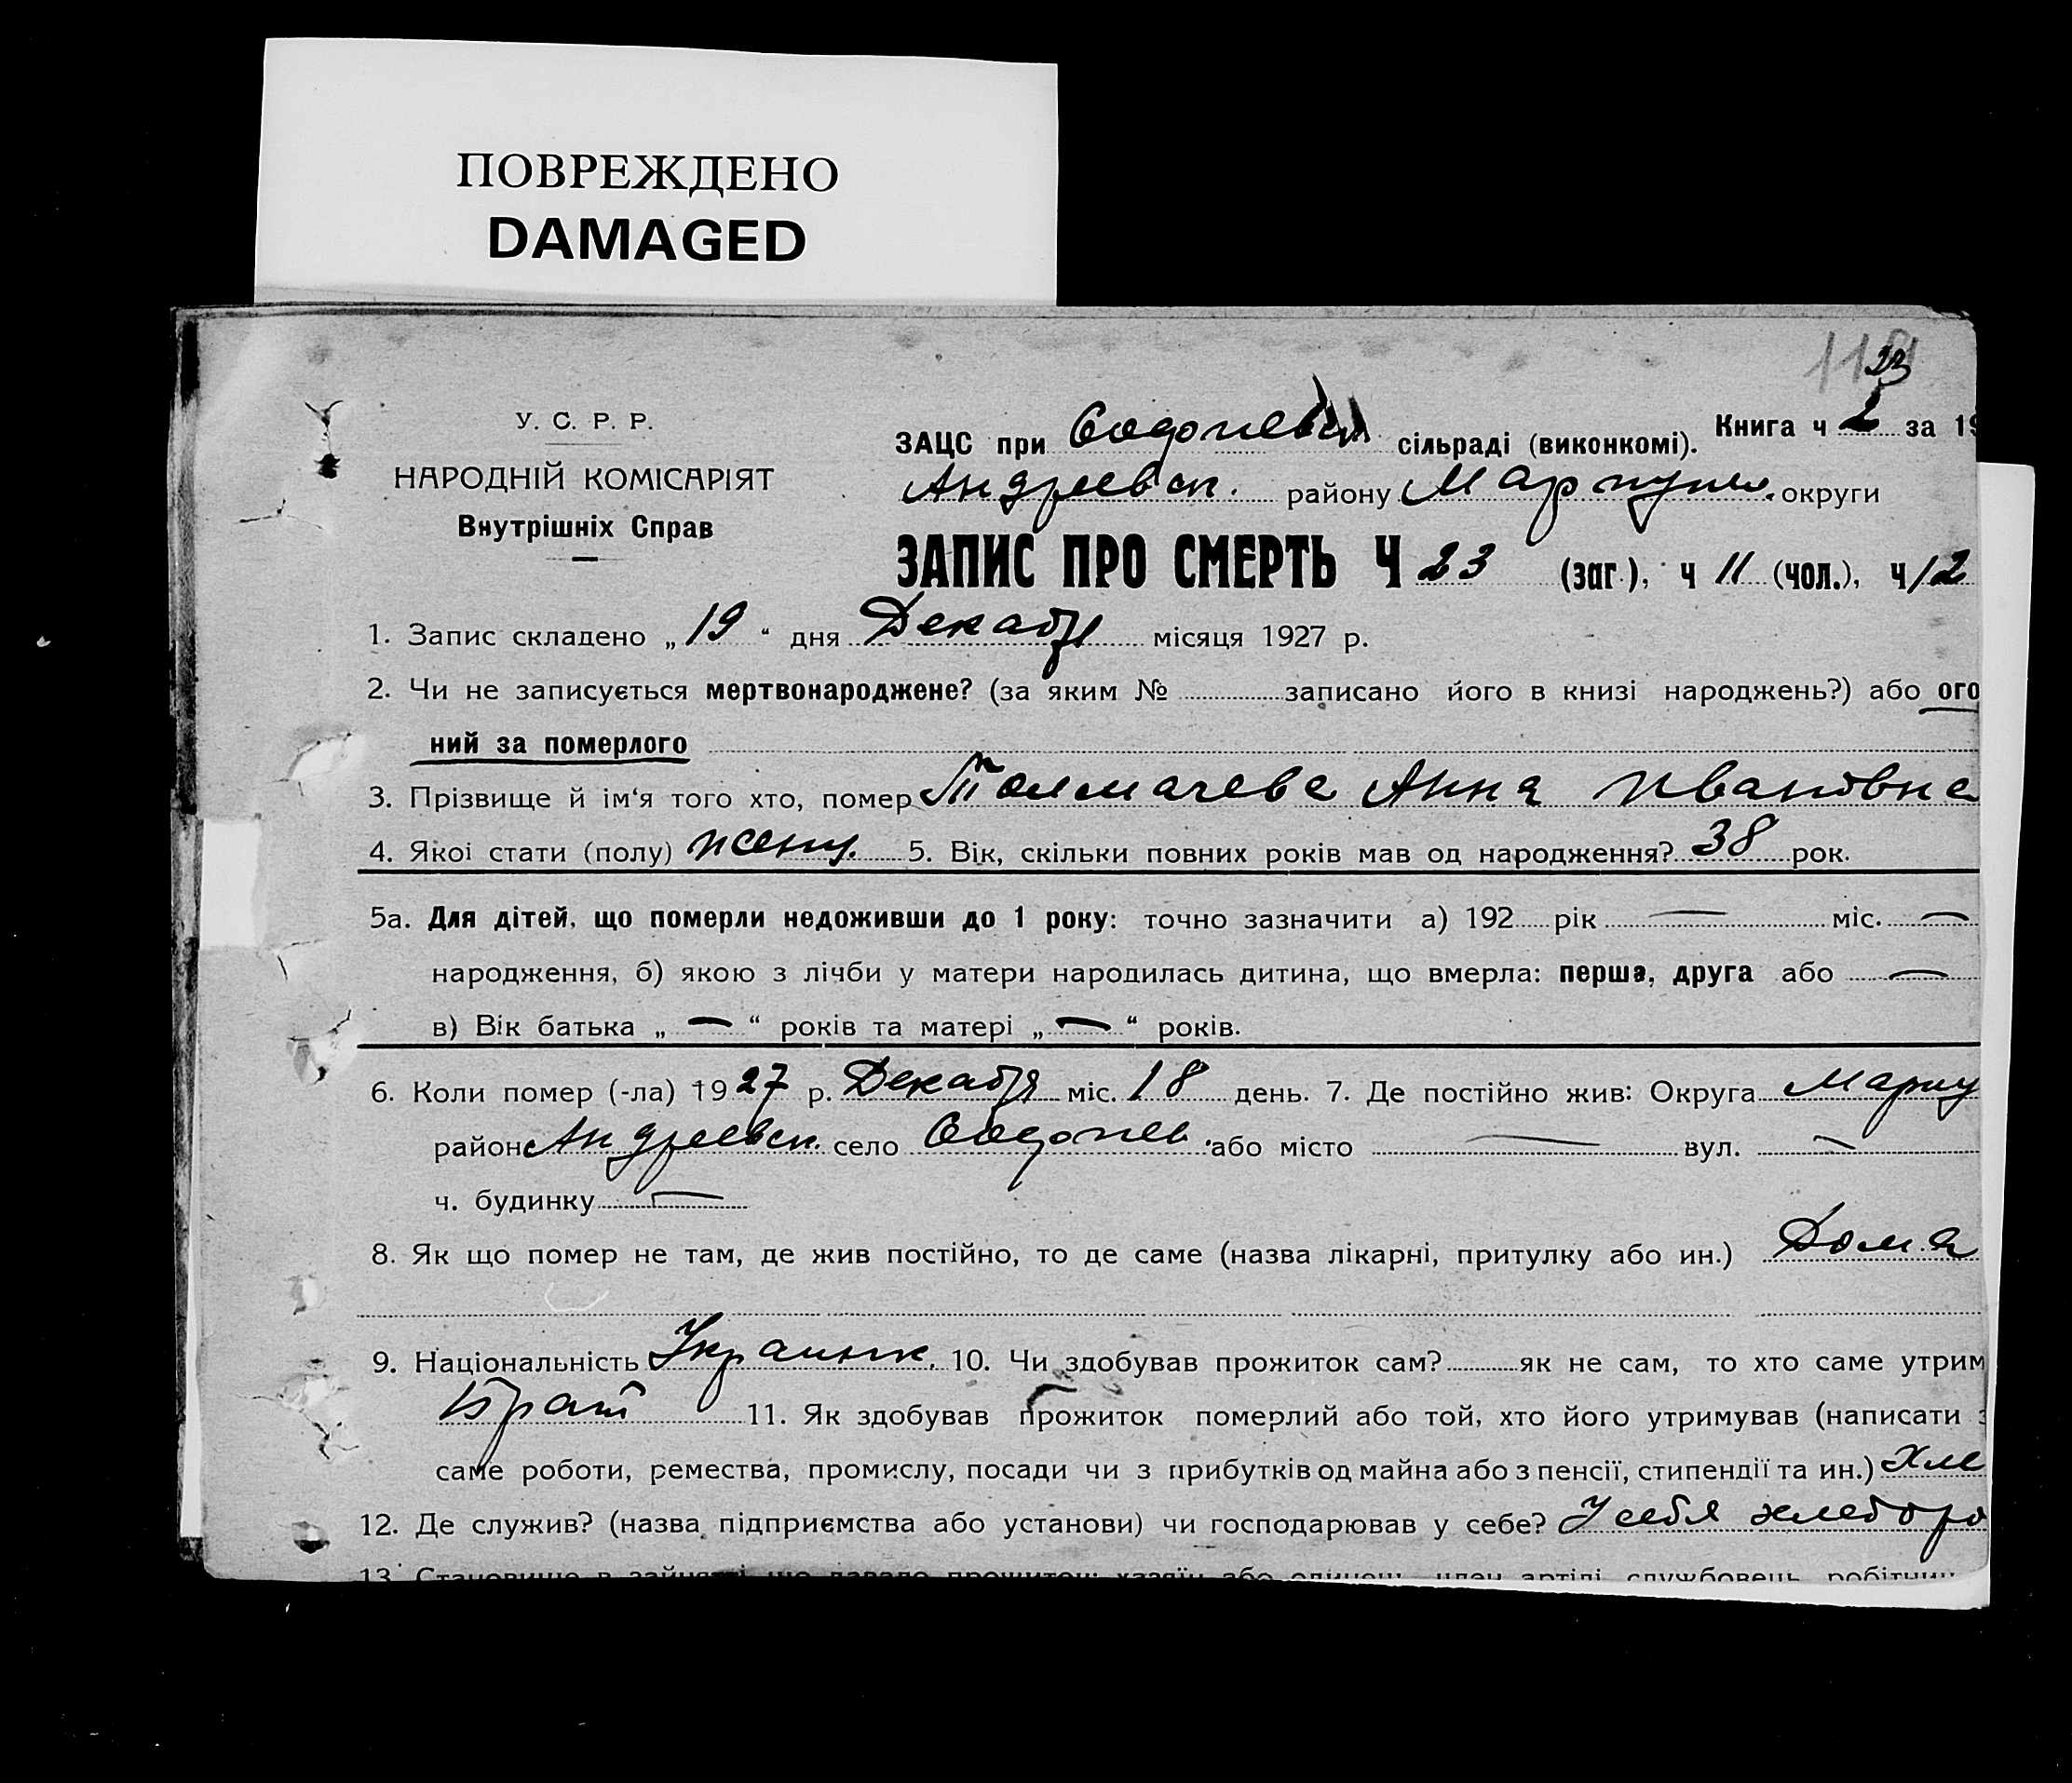 ПОВРЕЖДЕНО
DAMAGED
23
У. С. Р. Р.
НАРОДНІЙ КОМІСАРІЯТ
Внутрішніх Справ
Книга ч 2 за 19
ЗАЦС при сільраді (виконкомі).
Андреевск. району Мариупол. округи
ЗАПИС ПРО СМЕРТЬ Ч 23 (заг.), ч 11 (чол.), ч 12
1. Запис складено „19“ дня Декабря місяця 1927 р.
2. Чи не записується мертвонароджене? (за яким № записано його в книзі народжень?) або ого
ний за померлого
3. Прізвище й ім‘я того хто, помер Толмачева Анна Ивановна
4. Якої стати (полу) женщ. 5. Вік, скільки повних років мав од народження? 38 рок.
5а. Для дітей, що померли недоживши до 1 року: точно зазначити а) 192 рік — міс. —
народження, б) якою з лічби у матери народилась дитина, що вмерла: перша, друга або —
в) Вік батька „ — “ років та матері „ — “ років.
6. Коли помер (-ла) 1927 р. Декабря міс. 18 день. 7. Де постійно жив: Округа Мариу
район Андреевск. село або місто — вул. —
ч. будинку —
8. Як що помер не там, де жив постійно, то де саме (назва лікарні, притулку або ин.) Дома
9. Національність Украинк. 10. Чи здобував прожиток сам? як не сам, то хто саме утрим
Брат 11. Як здобував прожиток померлий або той, хто його утримував (написати з
саме роботи, ремества, промислу, посади чи з прибутків од майна або з пенсії, стипендії та ин.) Хле
12. Де служив? (назва підприємства або установи) чи господарював у себе? У себя хлеборо
13. Становище в занятті що давало прожиток: хазяїн або одинець, член артілі службовець робітник